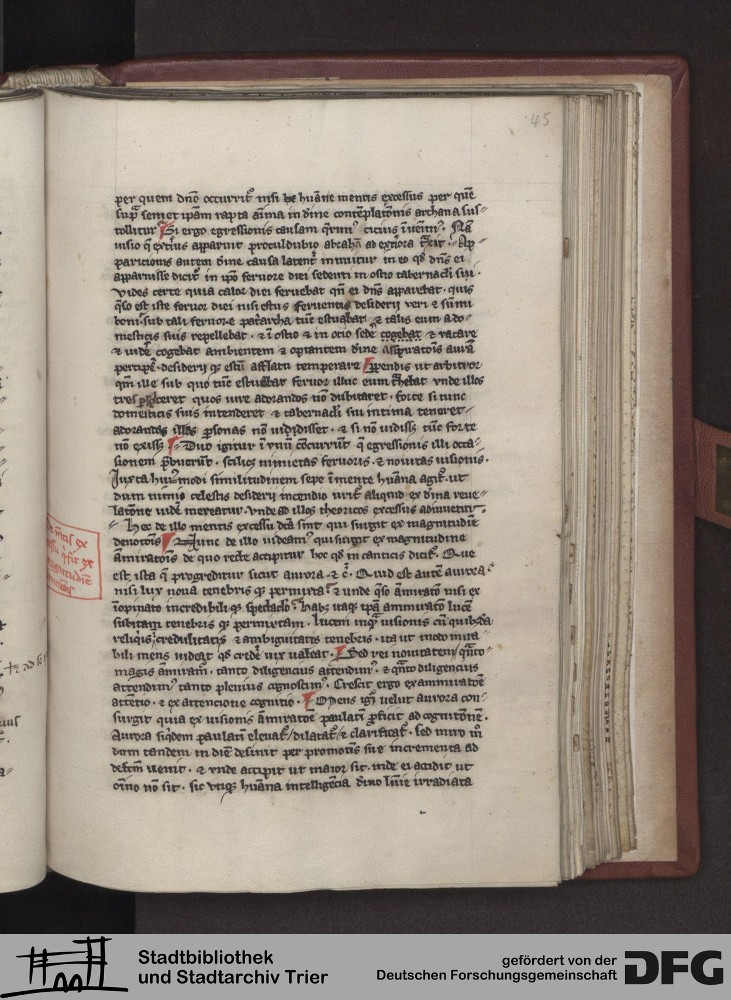 45
per quem dño occurrit᷒ nisi huāne mentis excessus per quē
sup̃ semet ip̄am rapta aīma in diīne contēplatōnis archana sus-
tollitur Si ergo egressionis causam q̄rim᷒ cicius īuenim᷒. Nā
uisio q̄ ext͛ius apparuit proculdubio abrahā ad ext͛iora t̄xit. Ap-
paricionis autem dīne causa latent͛ innuitur in eo qď dn̄s ei
apparuisse dicit᷒ in ip̄o feruore diei sedenti in ostio tabernacli sui.
Vides certe quia calor diei feruebat qn̄ ei dn̄s apparebat. quis
q̄so est iste feruor diei nisi estus feruentis desiderii veri & sūmi
boni. sub tali feruore pat͛archa tūc estuabat & talis eum a do-
mesticis suis repellebat. & ī ostio & in ocio sedē cogebat & vacare
& uidē cogebat ambientem & optantem dīne asspiratōis aurā
percipe͛. desiderii qȝ estū afflatu temperare Ppendis ut arbitror
qm̄ ille sub quo tūc estuabat feruor illuc eum t̄hebat vnde illos
tres pspiceret quos iure adorandos nō dubitaret. forte si tunc
domesticis suis intenderet & tabernacli sui intima teneret
adorandas illas p̱sonas nō uidisset. & si nō uidissȝ tūc forte
nō exissȝ Duo igitur ī vnū cōcurrūt q̄ egressionis illi occa-
sionem p̄buerūt. scilicȝ nimietas feruoris. & nouitas uisionis.
Iuxta hui᷒modi similitudinem sepe ī mente huāna agit᷒. ut
dum nimio celestis desiderii incendio urit᷒ aliquid ex diīna reue-
latōne uidē mereatur. vnde ad illos theoricos excessus adiuuetur
Hec de illo mentis excessu dc̄a sint qui surgit ex magnitudīe
deuotōis Nunc de illo uideam᷒ qui surgit ex magnitudine
am̄iratōnis de quo recte accipitur hoc qď in canticis dicit᷒. Que
est ista q̄ progreditur sicut aurora. & c̄. Quid est autē aurora
nisi lux noua tenebris qȝ permixta & unde q̄so am̄iratō nisi ex
īopinato incredibili qȝ spectaclo Habȝ itaqȝ ip̄a ammiratō lucē
subitam tenebris qȝ permixtam. lucem inqȝ uisionis cū quibȝdā
reliqiis credulitatis & ambiguitatis tenebris. ita ut modo mira
bili mens uideat qď credē uix ualeat. Sed rei nouitatem q̄nto
magis am̄iram᷒. tanto diligencius attendim᷒. & q̄nto diligencius
attendim᷒ tanto plenius cognoscim᷒. Crescit ergo ex ammiratōe
attētio. & ex attencione cognitio. Mens igr̄ velut aurora con-
surgit quia ex uisionis am̄iratōe paulatī p̱ficit ad cognitōnē.
Aurora siq̇dem paulatī eleuat᷒ / dilatat᷒ & clarificat᷒. sed miro m̊
dum tandem in diē desinit per promotōis sue incrementa ad
defectum uenit. & vnde accipit ut maior sit. inde ei accidit ut
oīno nō sit. sic vtiqȝ huāna intelligēcia diīno lum̄e irradiata
Stadtbibliothek
und Stadtarchiv Trier
gefördert von der
Deutschen Forschungsgemeinschaft
DFG